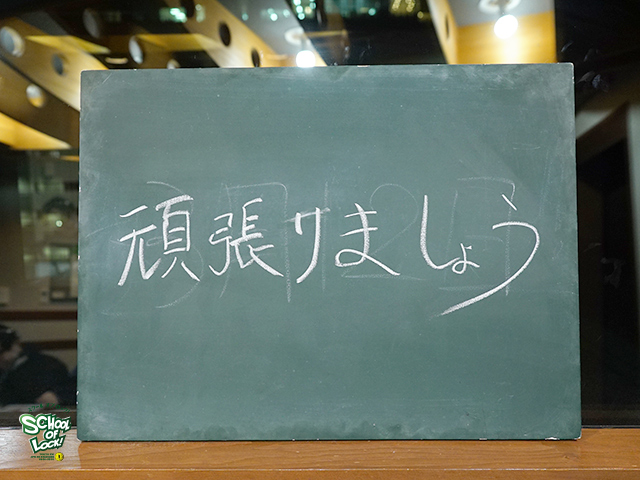 頑張りましょう
SCHOOL
OF
LOCK!